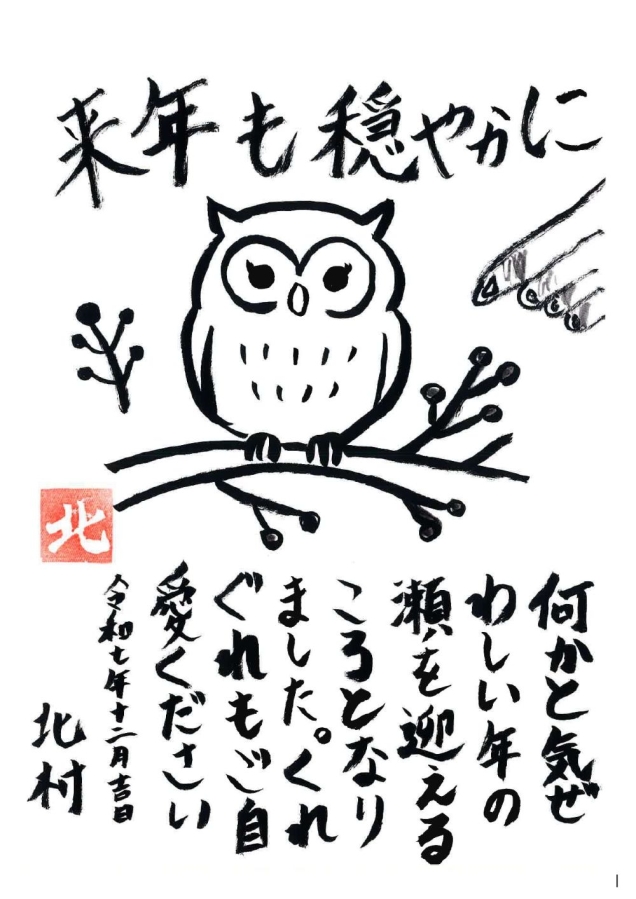 来年も穏やかに
北
何かと気ぜ
わしい年の
瀬を迎える
ころとなり
ました。くれ
ぐれもご自
愛ください
令和七年十二月吉日
北村